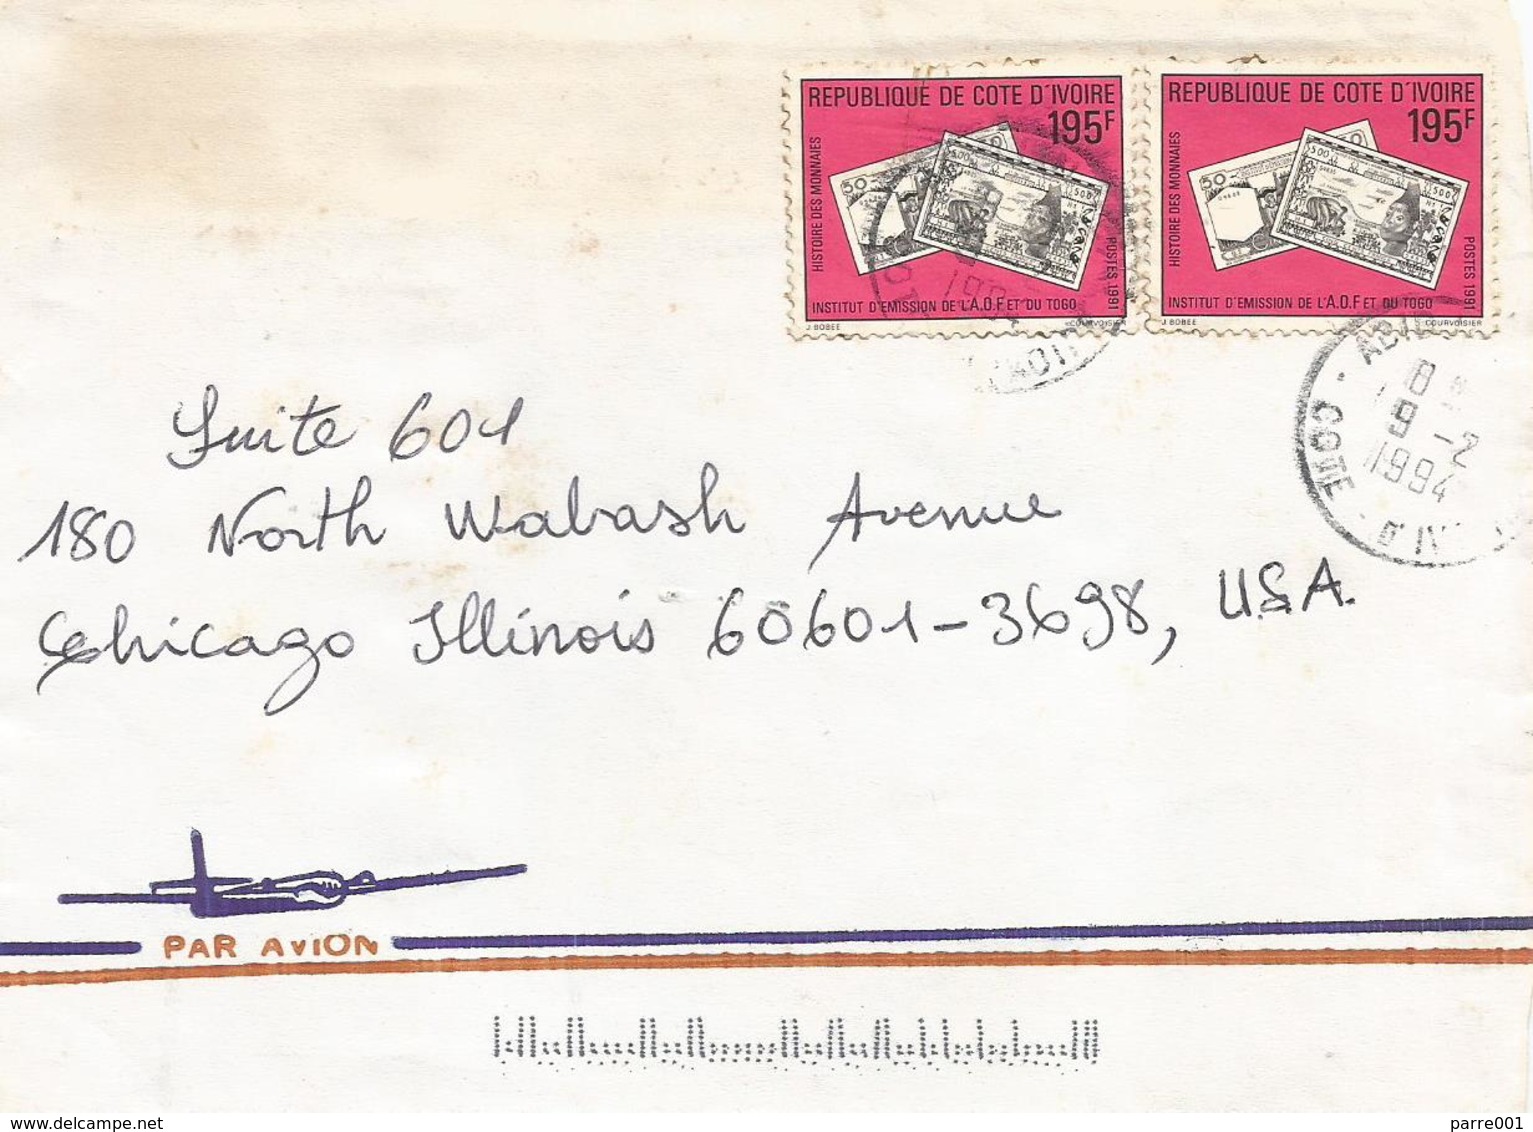 REPUBLIQUE DE COTE D'IVOIRE
195F
HISTOIRE DES MONNAIES
50
500
5007
POSTES 1991
INSTITUT D'EMISSION DE L'A.O.F ET DU TOGO
J BOBEE
COURVOISIER
REPUBLIQUE DE COTE D'IVOIRE
195F
HISTOIRE DES MONNAIES
50
500
5007
POSTES 1991
INSTITUT D'EMISSION DE L'A.O.F ET DU TOGO
J BOBEE
COURVOISIER
9 -2
1994
COTE D'IV
Suite 601
180 North Wabash Avenue
Chicago Illinois 60601-3698, U.S.A.
PAR AVION
www.delcampe.net
parre001